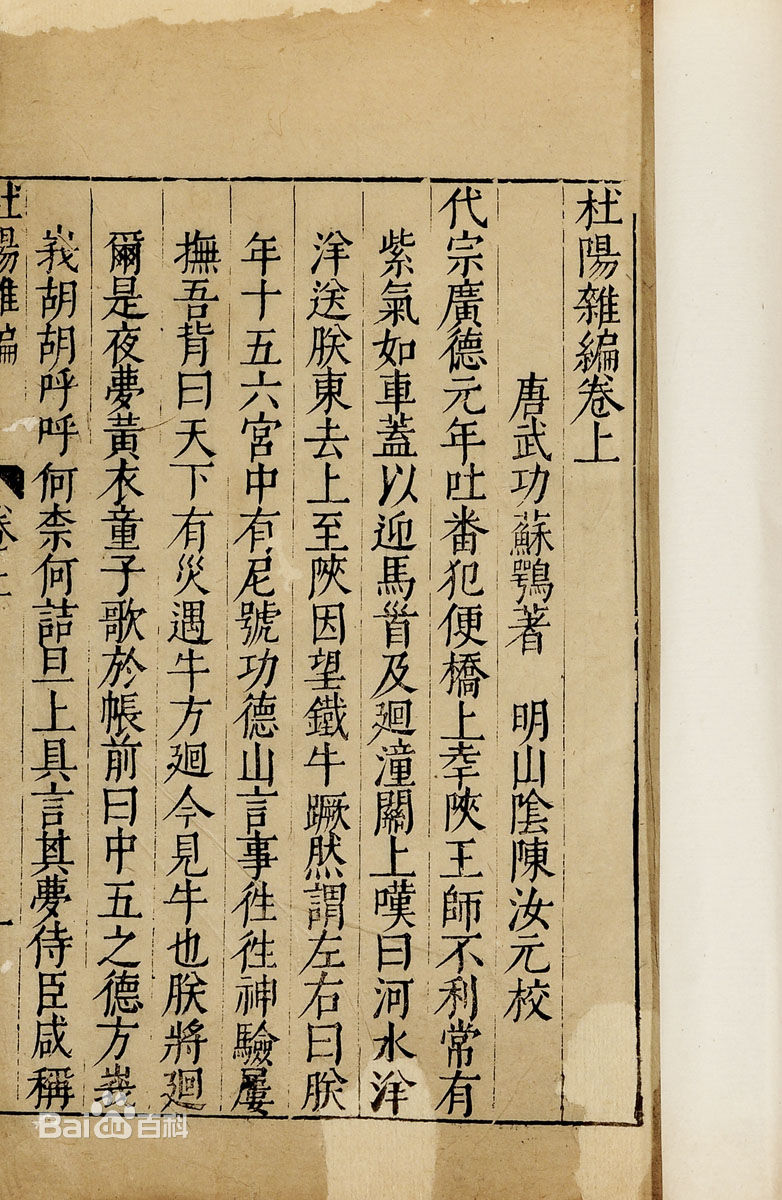 杜陽雜編卷上
唐武功蘇鶚著　明山陰陳汝元校
代宗廣德元年吐番犯便橋上幸陝王師不利常有
紫氣如車蓋以迎馬首及廻潼關上嘆曰河水洋
洋送朕東去上至陝因望鐵牛蹶然謂左右曰朕
年十五六宮中有尼號功德山言事徃徃神驗屢
撫吾背曰天下有災遇牛方廻今見牛也朕將廻
爾是夜夢黃衣童子歌於帳前曰中五之德方峩
峩胡胡呼呼何柰何詰旦上具言其夢侍臣咸稱
杜陽雜編
卷上
一
Baidu百科